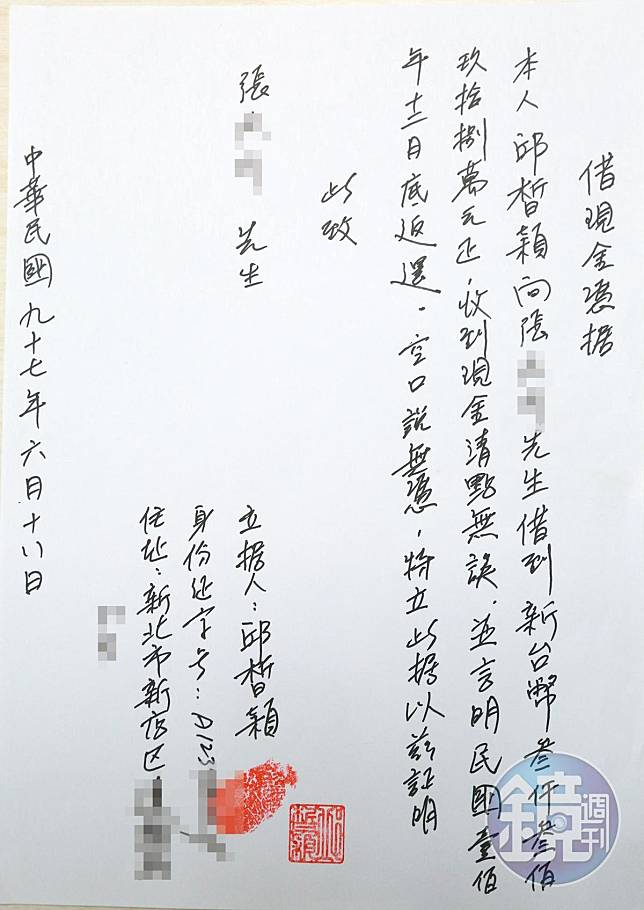 借現金憑据
本人邱皙穎向張 先生借到新台幣叁仟叁佰
玖拾捌萬元正,收到現金清點無誤.並言明民國壹佰
年十二月底返還。空口說無憑,特立此據以茲証明
此致
張 先生
立据人:邱皙穎
身份证字号:A123
住址:新北市新店区
中華民國九十七年六月十八日
鏡週刊